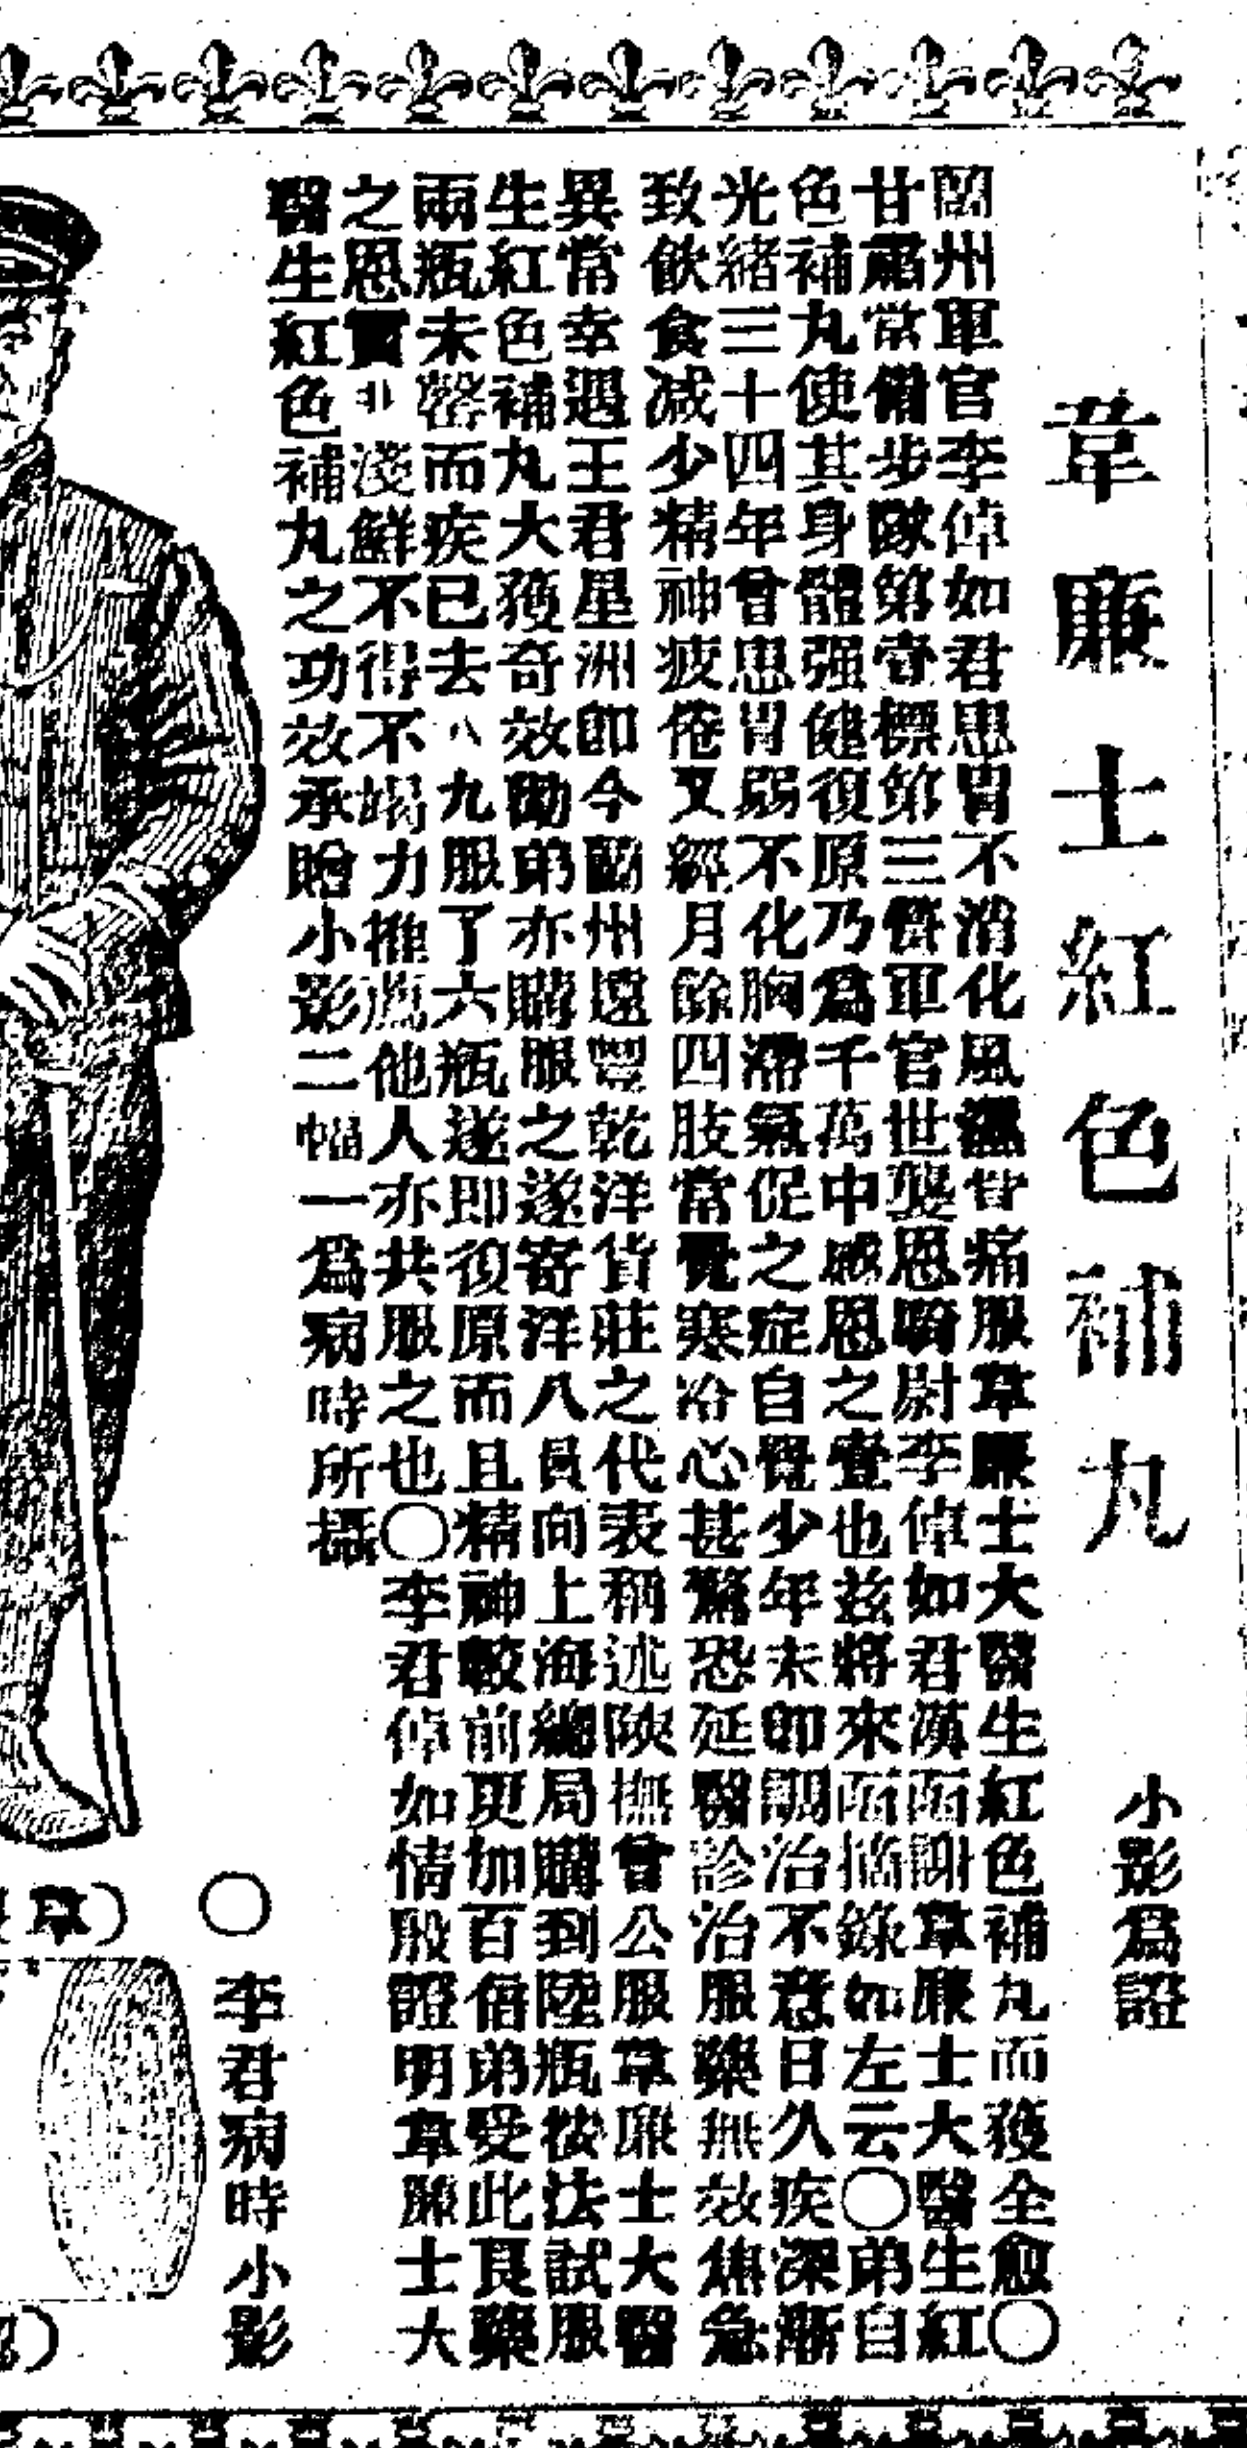 韋廉士紅色補丸
小影爲證
蘭州軍官李倬如君患胃不消化風濕骨痛服韋廉士大醫生紅色補丸而獲全愈〇
甘肅常備步隊第壹標第三營軍官世襲恩騎尉李倬如君漢陌謝韋廉士大醫生紅
色補丸使其身體强健復原乃爲千萬中感恩之壹也茲將來函摘錄如左云〇弟自
光緒三十四年曾患胃弱不化胸滯氣促之症自覺少年未卽調治不意日久疾深漸
致飲食減少精神疲倦又經月餘四肢常覺寒冷心甚驚恐延醫診治服藥無效焦急
異常幸遇王君星洲卽今蘭州遠豐乾洋貨莊之代表稱述陝撫曾公服韋廉士大醫
生紅色補丸大獲奇效勸弟亦購服之遂寄洋八員向上海總局購到陸瓶按法試服
兩瓶未罄而疾已去八九服了六瓶遂即復原而且精神較前更加百倍弟受此良藥
之恩實非淺鮮不得不竭力推薦他人亦共服之也〇李君倬如情殷證明韋廉士大
醫生紅色補丸之功效承贈小影二幅一爲病時所攝
〇李君病時小影